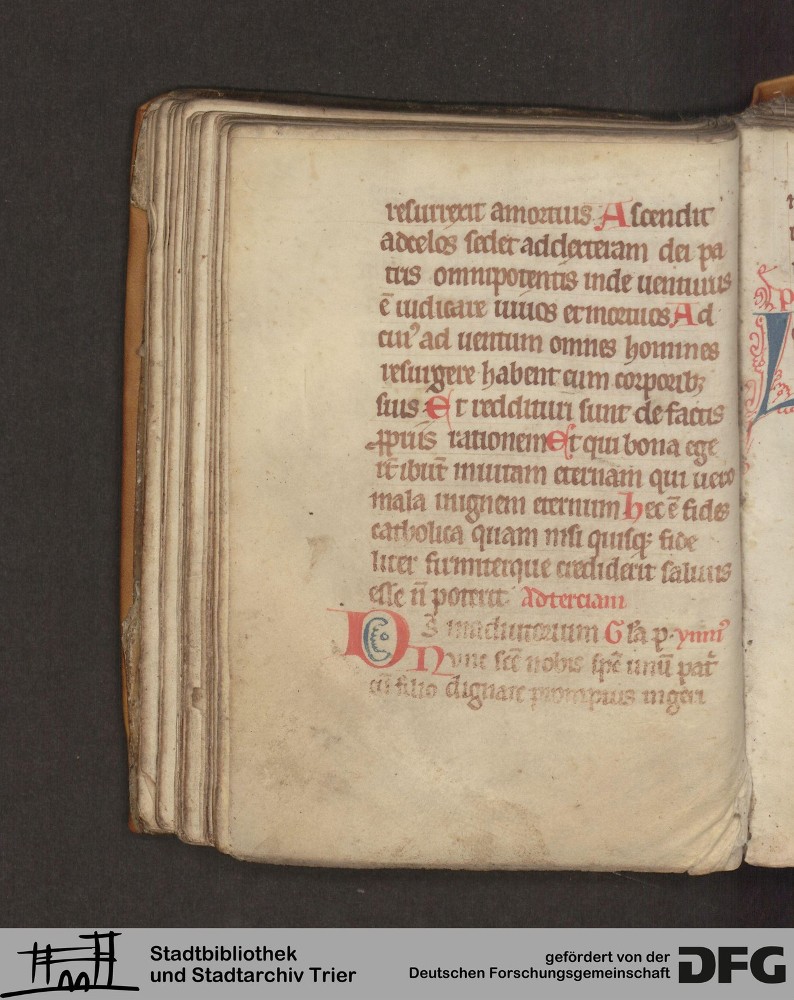 resurrexit amortuis Ascendit
adcelos sedet addexteram dei pa
tris omnipotentis inde uenturus
ē iudicare uiuos etmortuos Ad
cuiꝰ ad uentum omnes homines
resurgere habent cum corporibꝫ
suis Et reddituri sunt de factis
ꝓpriis rationem Et qui bona ege
rt̄ ibūt inuitam eternam qui uero
mala inignem eternum hec ē fides
catholica quam nisi quisqꝫ fide
liter firmiterque crediderit saluus
esse n̄ poterit Adterciam
Ds̄ inadiutorium Gl̓a p. ymnꝰ
Nunc scē nobis sp̄c unū pat̄
cū filio dignare promptus ingeri
Stadtbibliothek
und Stadtarchiv Trier
gefördert von der
Deutschen Forschungsgemeinschaft
DFG